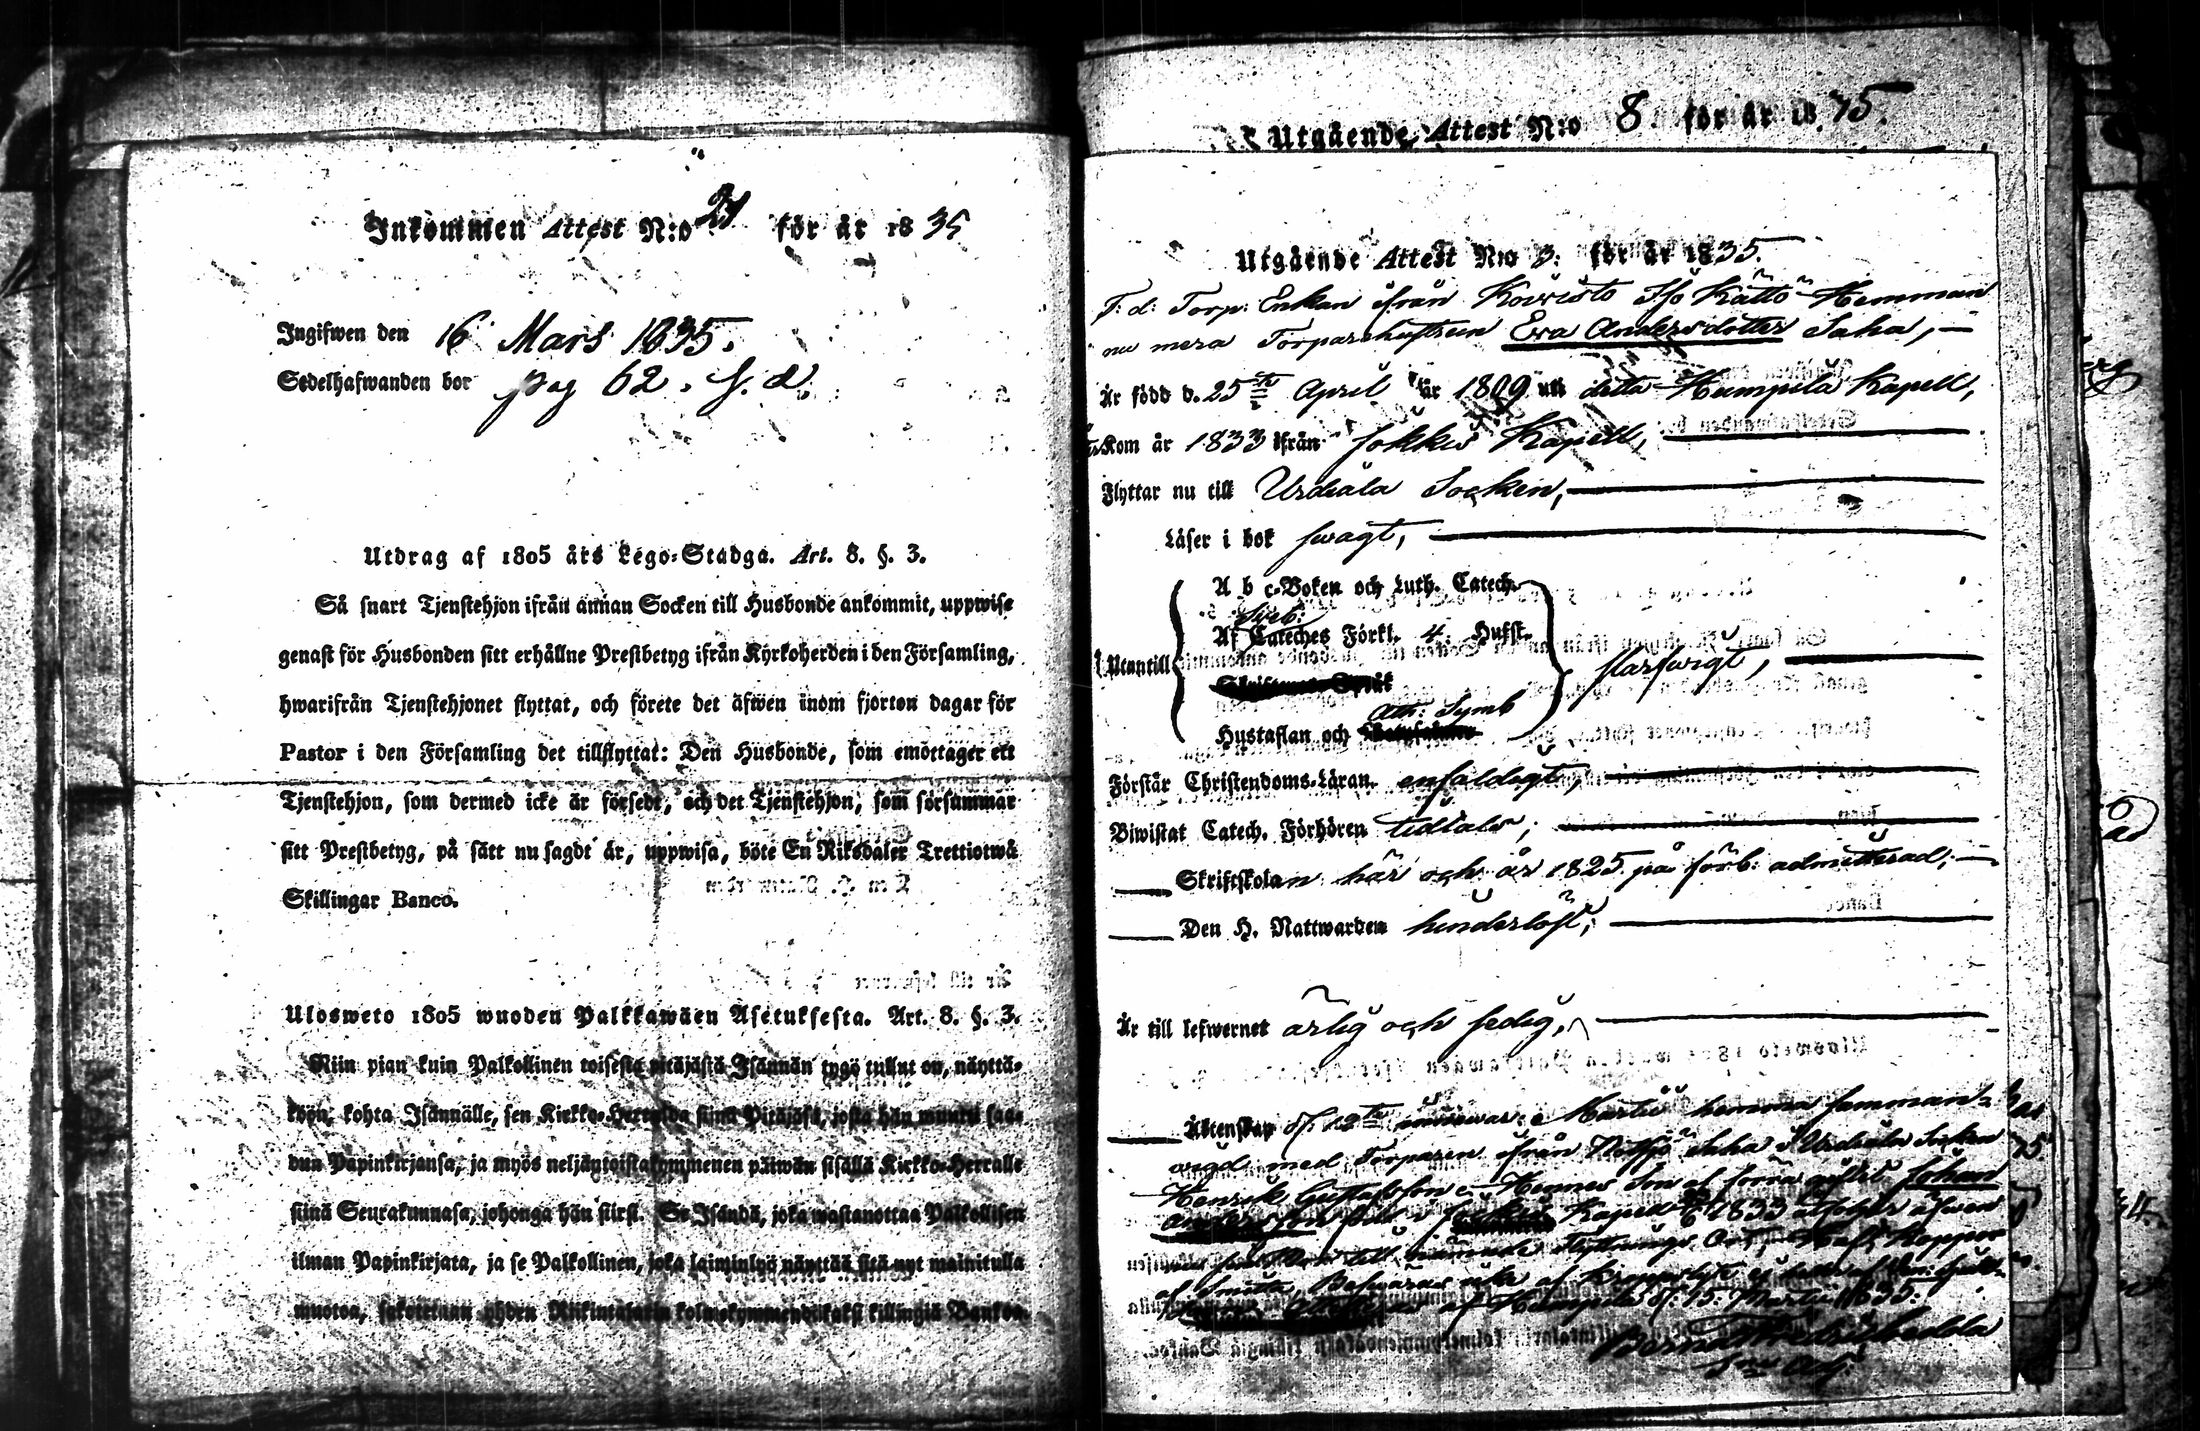 Inkommen Attest N:o 21 för år 1835
Ingifwen den 16 Mars 1835.
Sedelhafwanden bor pag 62. f. d.
Utdrag af 1805 års Lego-Stadga. Art. 8. §. 3.
Så snart Tjenstehjon ifrån annan Socken till Husbonde ankommit, uppwise
genast för Husbonden sitt erhållne Prestbetyg ifrån Kyrkoherden i den Församling,
hwarifrån Tjenstehjonet flyttat, och förete det äfwen inom fjorton dagar för
Pastor i den Församling det tillflyttat: Den Husbonde, som emottager ett
Tjenstehjon, som dermed icke är försedt, och det Tjenstehjon, som försummar
sitt Prestbetyg, på sätt nu sagdt är, uppwisa, böte En Riksdaler Trettiotwå
Skillingar Banco.
Ulosweto 1805 wuoden Palkkawäen Asetuksesta. Art. 8. §. 3.
Niin pian kuin Palkollinen toisesta pitäjästä Isännän tygö tullut on, näyttä-
köön kohta Isännälle, sen Kirkko-Herralda siinä Pitäjäsä, josta hän muutti saa-
dun Papinkirjansa, ja myös neljäntoistakymmenen päiwän sisällä Kirkko-Herralle
siinä Seurakunnasa, johonga hän siirsi. Se Isändä, joka wastanottaa Palkollisen
ilman Papinkirjata, ja se Palkollinen, joka laiminlyö näyttää sitä nyt mainitulla
muotoa, sakotetaan yhden Riikintalarin kolmekymmendäkaksi killingiä Bankoa.
Utgående Attest N:o 8. för år 1875.
Utgående Attest N:o 3. för år 1835.
F: d: Torp: Enkan ifrån Koivisto Kättö Hemman
nu mera Torparehustrun Eva Andersdotter Saha,
Är född d. 25te April år 1809 uti detta Humpila Kapell,
Kom år 1833 ifrån Jokkis Kapell,
Flyttar nu till Urdiala Socken,
Läser i bok swagt,
Utantill
A b c-Boken och Luth. Catech.
Sveb:
Af Cateches Förkl. 4. Hufst.
Ath: Symb
Hustaflan och
Förstår Christendoms-Läran enfaldigt,
Biwistat Catech. Förhören
Skriftskolan här och år 1825 på förb: admitterad,
Den H. Nattwarden hinderlöst,
Är till lefwernet ärlig och sedig,
Äktenskap Martii hemma samman-
wigd med Torparen ifrån i Urdiala Socken
Henrik Gustafsson. Hennes Son af förra giftet Johan
Andersson Kapell 1833
till nämnde flyttnings Ort, Haft Koppor
af Humpila d: 15. Martii 1835.